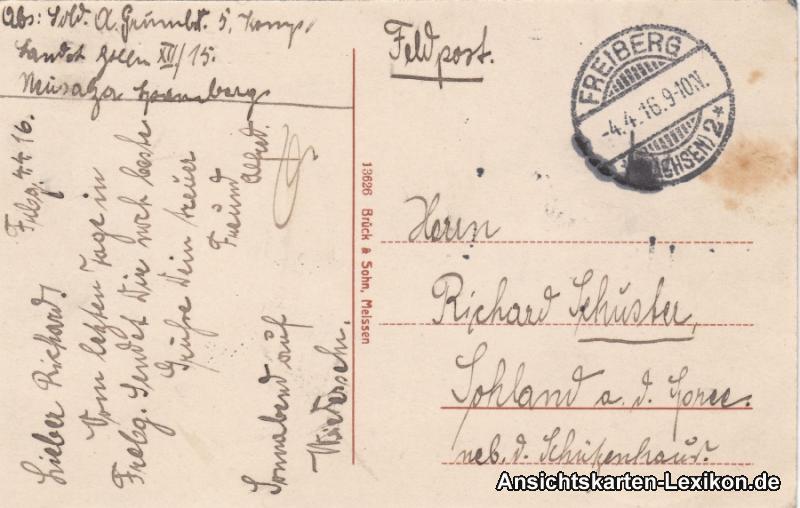 Abs: Sold. A. Grünbt. 5. Komp.
Landst XII/15.
Neusalza
Feldpost.
FREIBERG
-4.4.16.9-10N.
(SACHSEN) 2*
Frbg. 4.4.16.
Lieber Richard!
Vom letzten Tage in
Freibg. sendet Dir noch beste
Grüße Dein treuer
Freund
Alfred.
Sonnabend auf
Wiedersehn.
13626 Brück & Sohn, Meissen
Herrn
Richard Schuster,
Sohland a. d. Spree.
neb. d. Schützenhaus.
Ansichtskarten-Lexikon.de